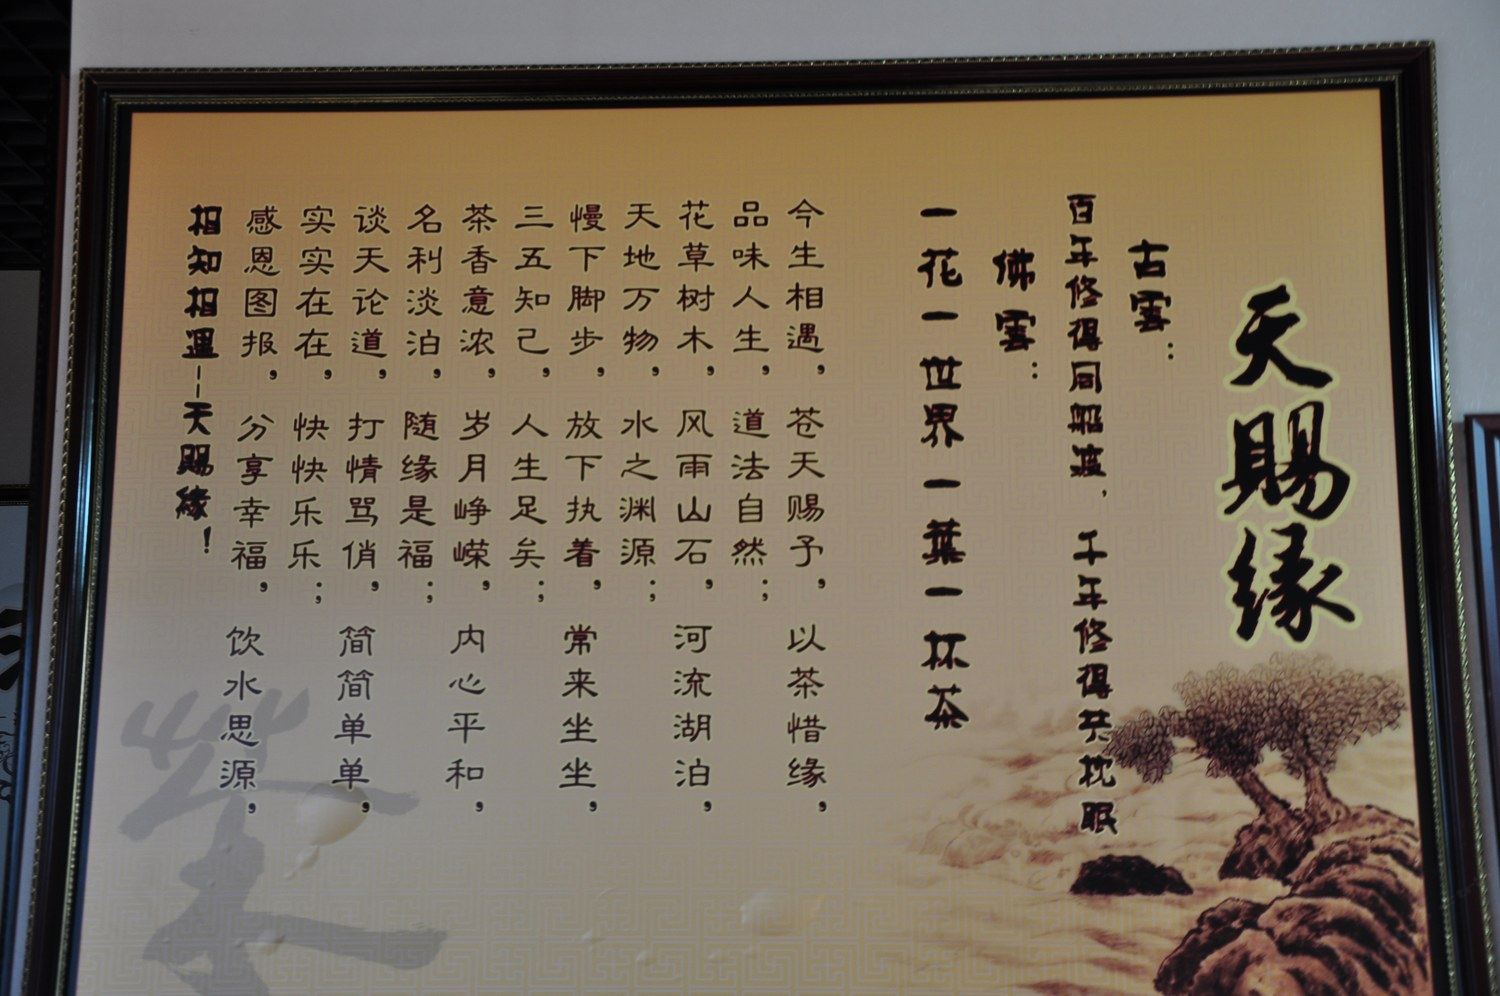 天賜缘
古雲：
百年修得同船渡，千年修得共枕眠
佛雲：
一花一世界一葉一杯茶
今生相遇，苍天赐予，以茶惜缘，
品味人生，道法自然；
花草树木，风雨山石，河流湖泊，
天地万物，水之渊源；
慢下脚步，放下执着，常来坐坐，
三五知己，人生足矣；
茶香意浓，岁月峥嵘，内心平和，
名利淡泊，随缘是福；
谈天论道，打情骂俏，简简单单，
实实在在，快快乐乐；
感恩图报，分享幸福，饮水思源，
相知相遇--天賜缘！
茶